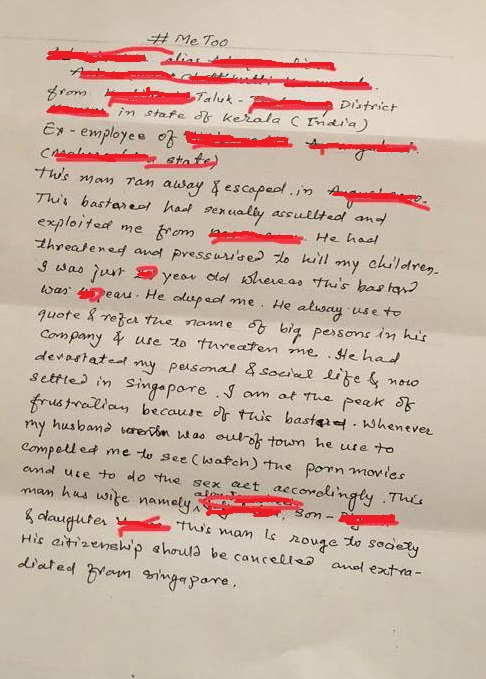 # Me Too
alias
from Taluk - District
in state of Kerala (India)
Ex-employee of
( state)
This man ran away & escaped in
This bastared had sexually assullted and
exploited me from . He had
threatened and pressurised to kill my children.
I was just year old whereas this bastard
was years. He duped me. He alway use to
quote & refer the name of big persons in his
Company & use to threaten me. He had
devastated my personal & social life & now
settled in singapore. I am at the peak of
frustralian because of this bastard. Whenever
my husband was out of town he use to
compelled me to see (watch) the porn movies
and use to do the sex act accordingly. This
man has wife namely, , son -
& daughter This man is rouge to society
His citizenship should be cancelled and extra-
diated from singapore.